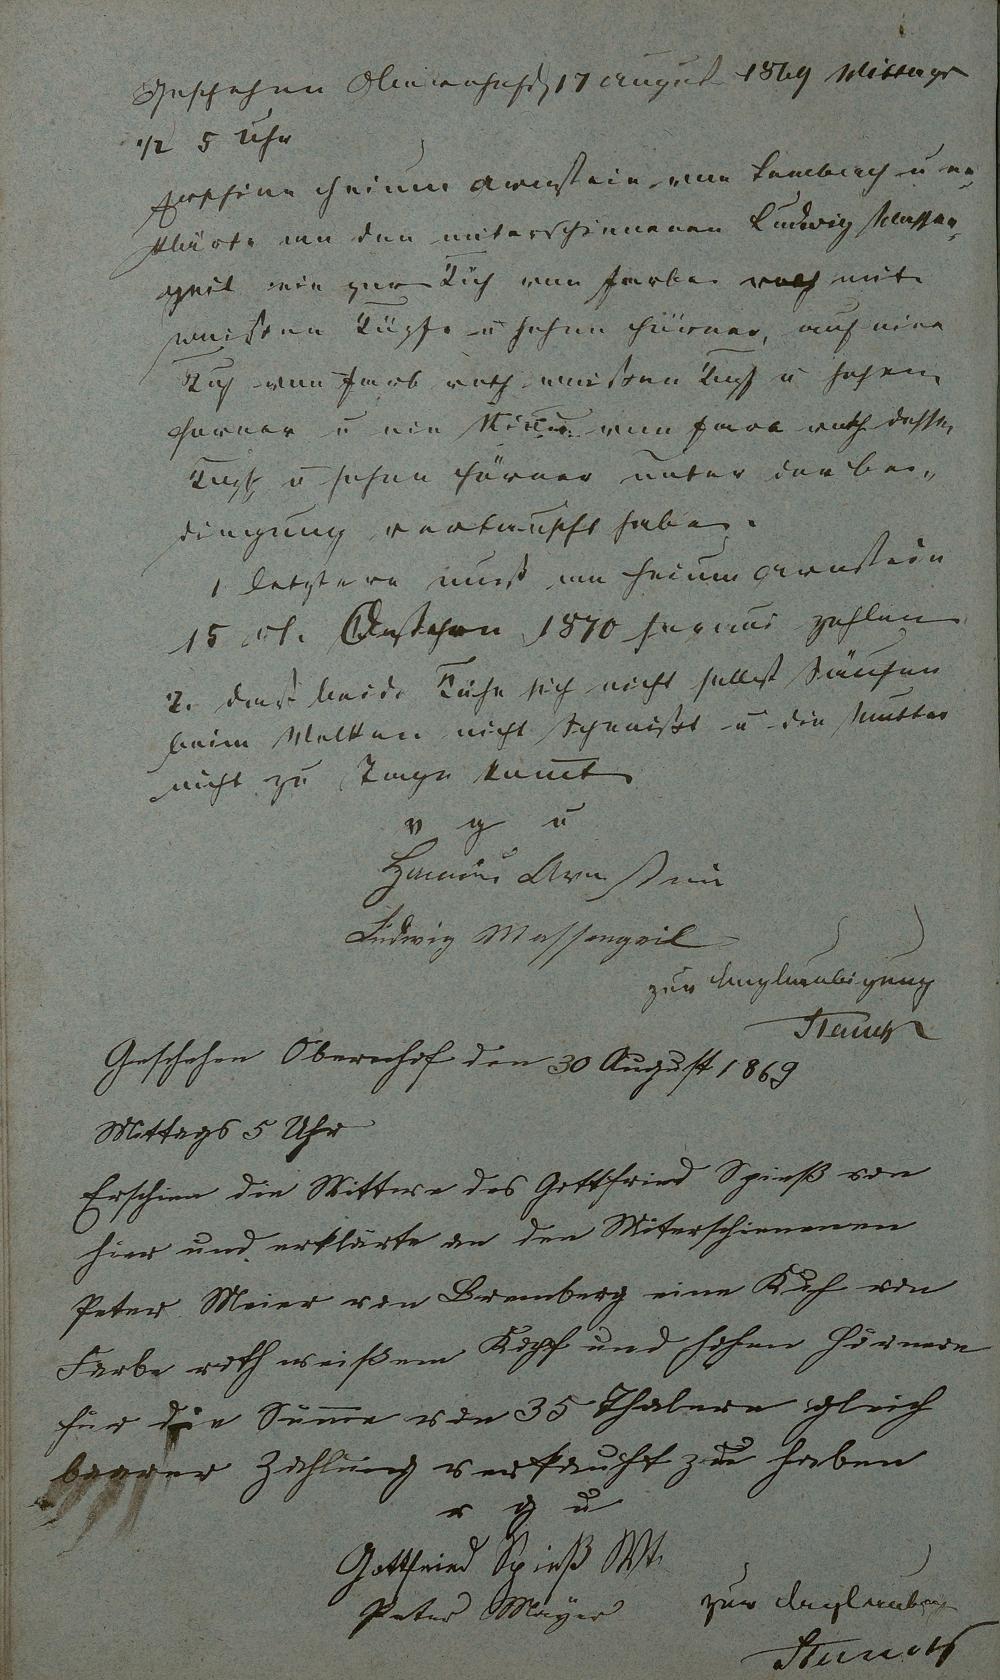 Geschehen Obernhof, 17 August 1869 Mittags
1/2 5 Uhr
Erschien Heium Arnstein von Seelbach u er=
klärte an den miterschienenen Ludwig Massen=
geil eine gur Küh von farbe roth mit
weißen Küpfe u hohen Hürner, auf eine
Kuh von farb roth weißen Kupf u hohen
Horner u ein von farbe roth desse,
Kupf u hohen Hörner unter der be=
dingung vertauscht habe.
1 letztere muß an Heium Arnstein
15 rth. Ostern 1870 heraus zahlen
2. das beide Kühe sich nicht selbst Säufen
beim Melken nicht schmeißt u die Mutter
nicht zu Tage kommt
v g u
Arnstein
Ludwig Massengeil
zur Beglaubigung
Geschehen Obernhof den 30 August 1869
Mittags 5 Uhr
Erschien die Wittwe des Gottfried Spieß von
hier und erklärte an den Miterschienenen
Peter Meier von Bremberg eine Kuh von
Farbe roth weißem Kopf und hohen Hörnern
für die Summe von 35 Thalern gleich
baarer Zahlung verkauft zu haben
v g u
Gottfried Spieß Wt.
Peter Mayer zur Beglaubig